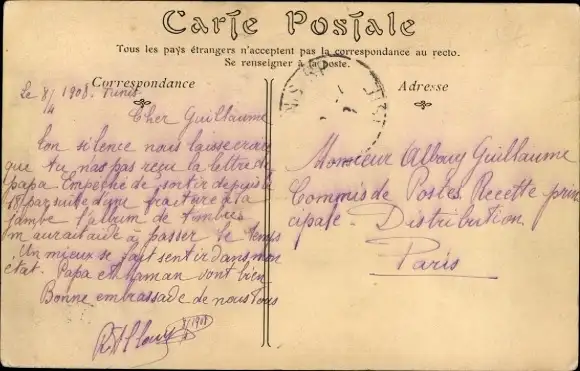 Carte Postale
Tous les pays étrangers n'acceptent pas la correspondance au recto.
Se renseigner à la poste.
Correspondance
Adresse
Le 8/4 1908. Tunis
Cher Guillaume
Ton silence nous laisse croire
que tu n'as pas reçu la lettre de
papa. Empêché de sortir depuis le
par suite d'une fracture à la
jambe l'album de timbres
m'aurait aidé à passer le temps
Un mieux se fait sentir dans mon
état. Papa et Maman vont bien
Bonne embrassade de nous tous
1908
Monsieur Albouy Guillaume
Commis de Postes Recette prin
cipale. Distribution
Paris